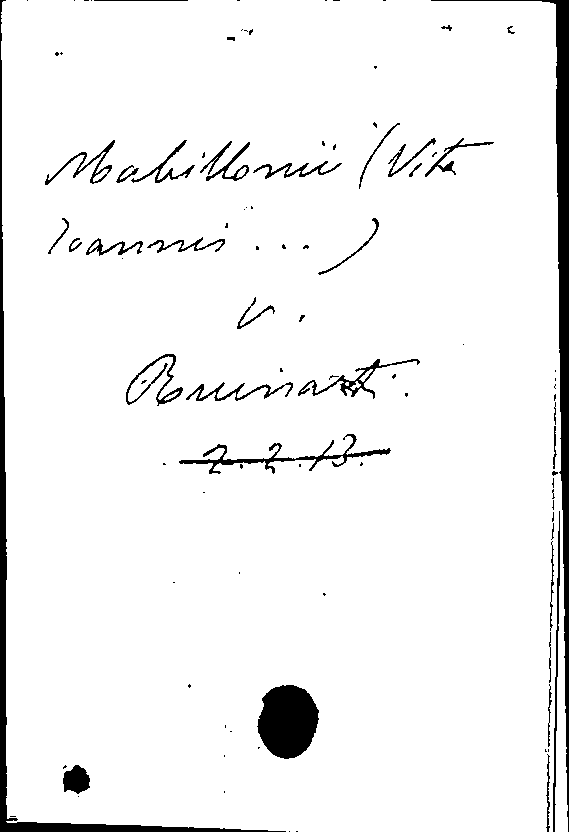 Mabillonii (Vita
Ioannis ...)
v.
Ruinart.
2.2.13.